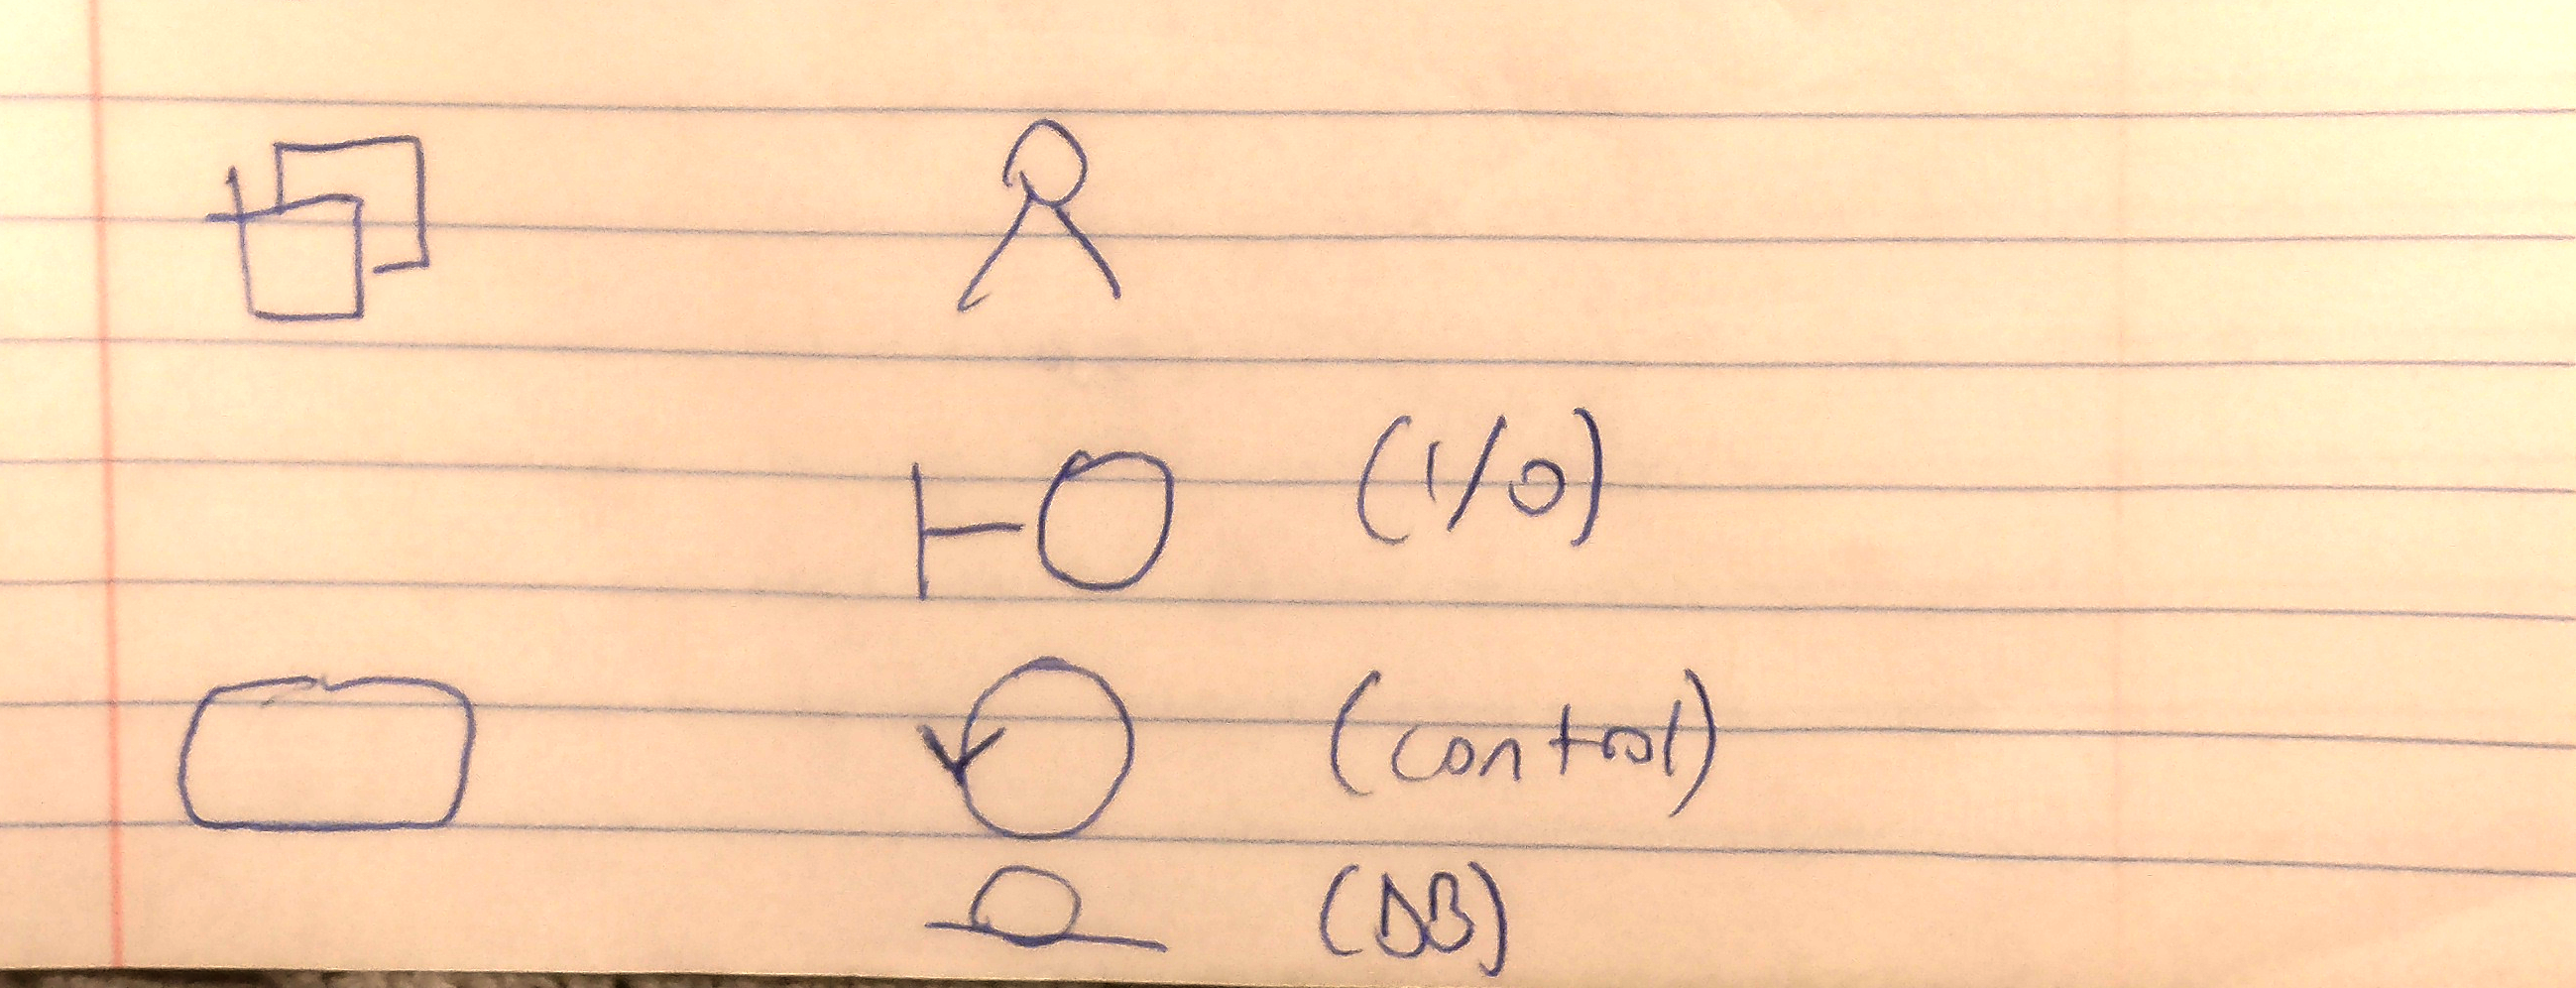 (I/O)
(control)
(DB)